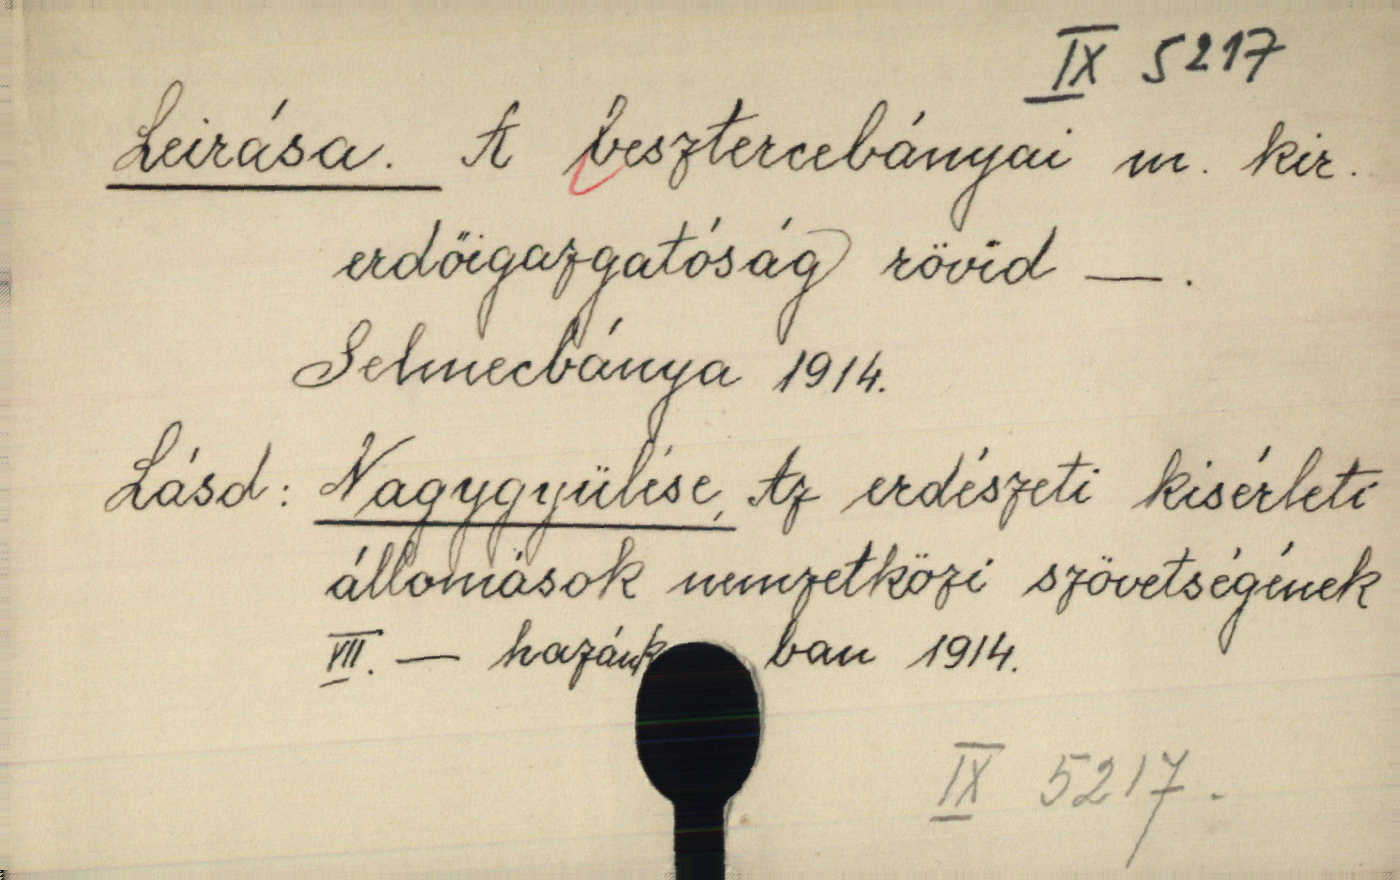 IX 5217
Leirása. A besztercebányai m. kir.
erdőigazgatóság rövid —.
Selmecbánya 1914.
Lásd: Nagygyülése, Az erdészeti kisérleti
állomások nemzetközi szövetségének
VII. — hazánkban 1914.
IX 5217.